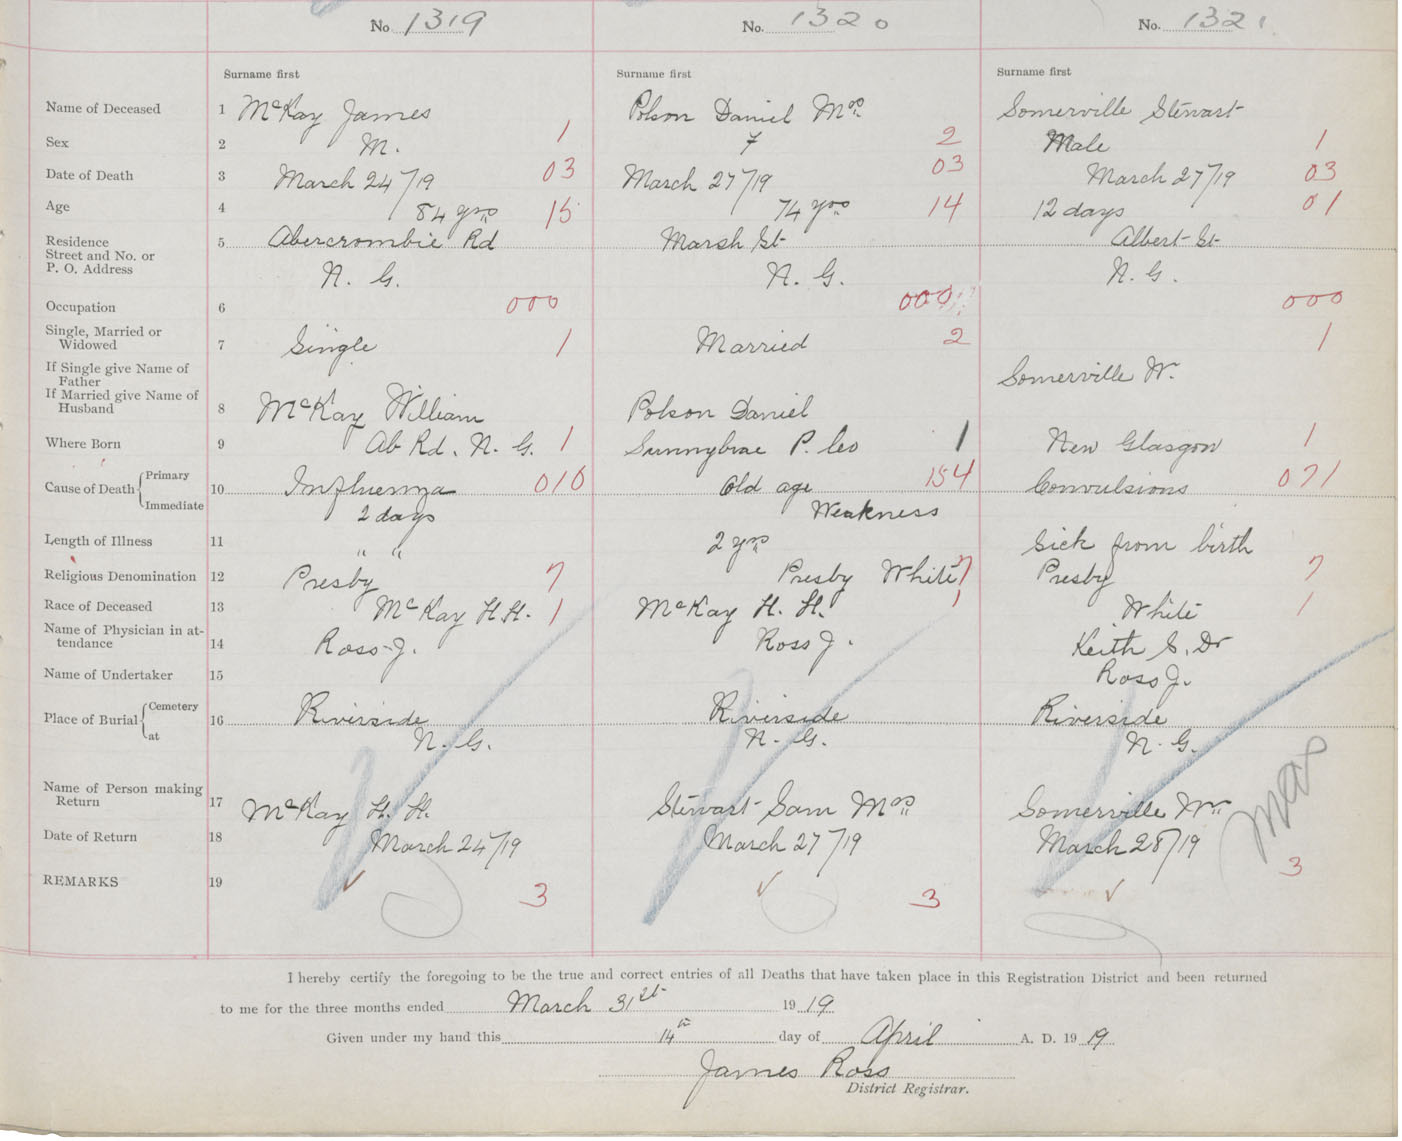 No. 1319 No. 1320 No. 1321
Surname first Surname first Surname first
Name of Deceased 1 McKay James Polson Daniel Mrs Somerville Stewart
Sex 2 M. 1 F 2 Male 1
Date of Death 3 March 24/19 03 March 27/19 03 March 27/19 03
Age 4 84 yrs 15 74 yrs 14 12 days 01
Residence 5 Abercrombie Rd Marsh St Albert St
Street and No. or
P. O. Address N. G. N. G. N. G.
Occupation 6 000 000 000
Single, Married or
Widowed 7 Single 1 Married 2 1
If Single give Name of
Father Somerville W.
If Married give Name of
Husband 8 McKay William Polson Daniel
Where Born 9 Ab Rd. N. G. 1 Sunnybrae P. Co 1 New Glasgow 1
Cause of Death { Primary
10 Influenza 010 Old age 154 Convulsions 071
Immediate 2 days Weakness
Length of Illness 11 " " 2 yrs Sick from birth
Religious Denomination 12 Presby 7 Presby White 7 Presby 7
Race of Deceased 13 McKay H. H. 1 McKay H. H. 1 White 1
Name of Physician in at-
tendance 14 Ross J. Ross J. Keith S. Dr
Name of Undertaker 15 Ross J.
Place of Burial { Cemetery
16 Riverside Riverside Riverside
at N. G. N. G. N. G.
Name of Person making
Return 17 McKay H. H. Stewart Sam Mrs Somerville Wm
Date of Return 18 March 24/19 March 27/19 March 28/19
REMARKS 19 ✓ 3 ✓ 3 ✓ 3
I hereby certify the foregoing to be the true and correct entries of all Deaths that have taken place in this Registration District and been returned
to me for the three months ended March 31st 1919
Given under my hand this 14th day of April A. D. 1919
James Ross
District Registrar.